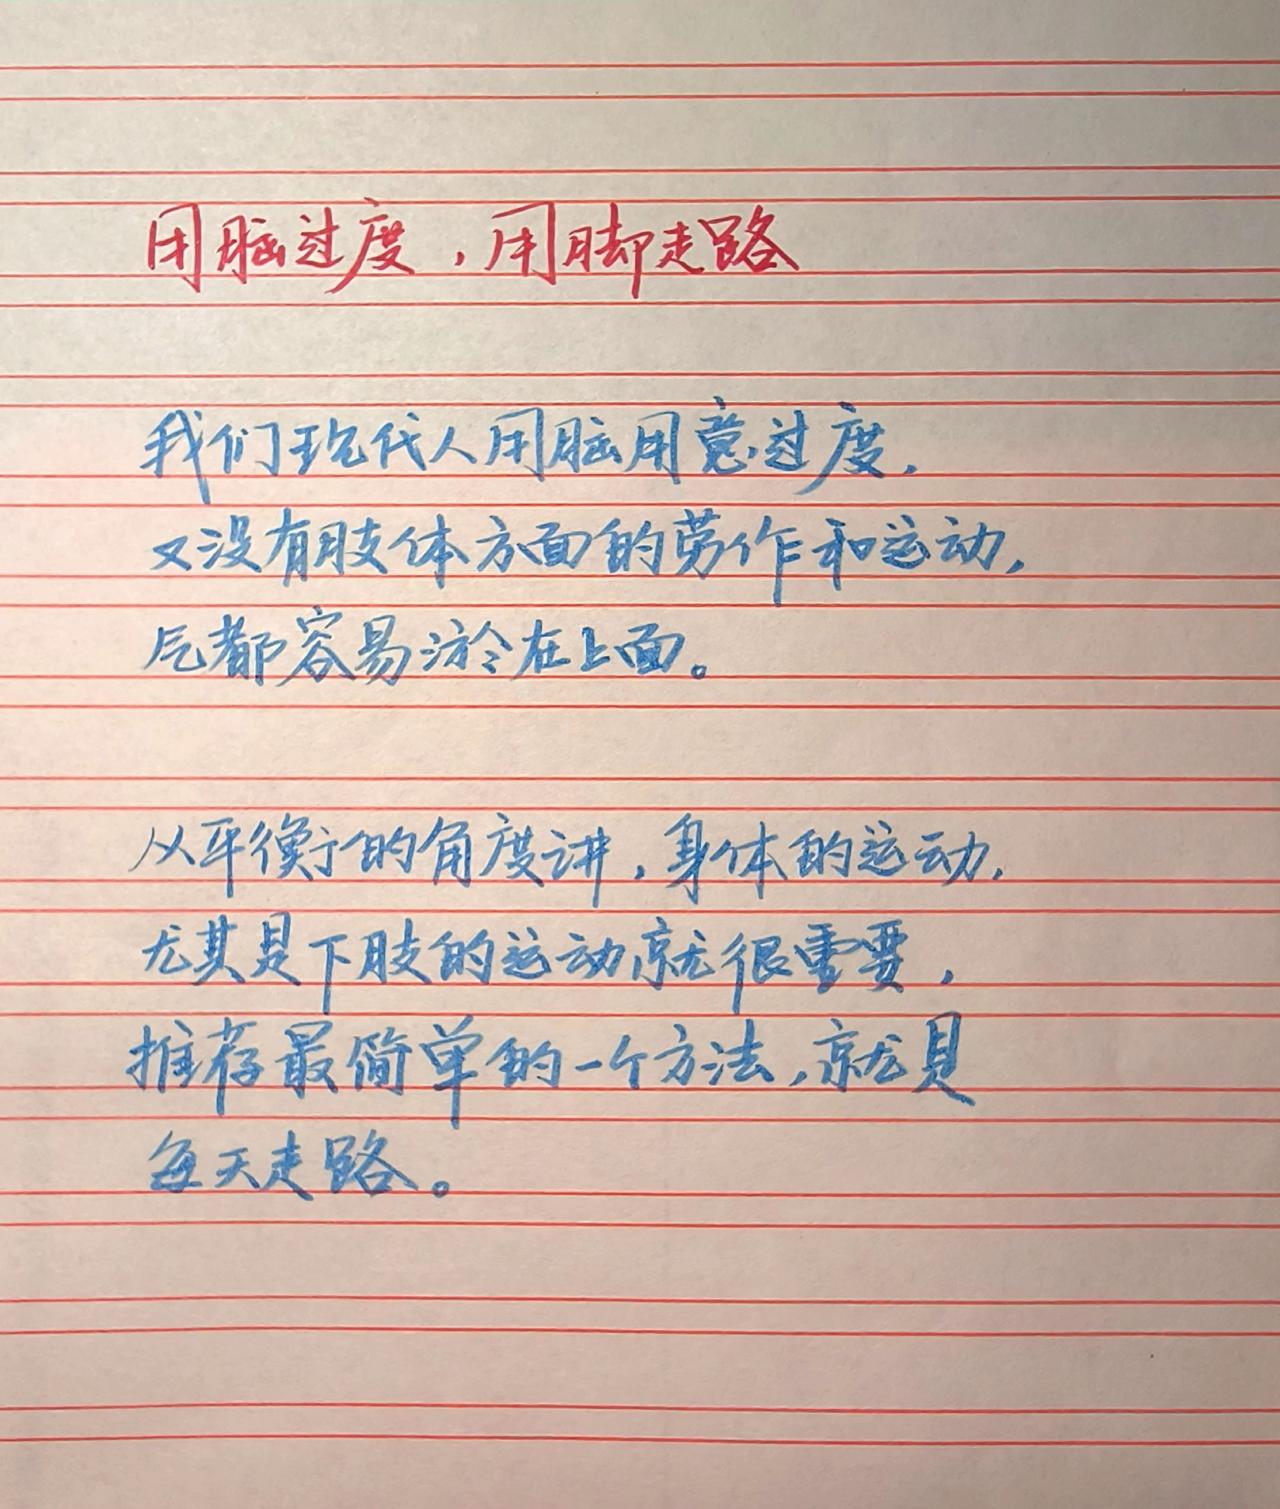 用脑过度，用脚走路
我们现代人用脑用意过度，
又没有肢体方面的劳作和运动，
气都容易淤在上面。
从平衡的角度讲，身体的运动，
尤其是下肢的运动就很重要，
推荐最简单的一个方法，就是
每天走路。